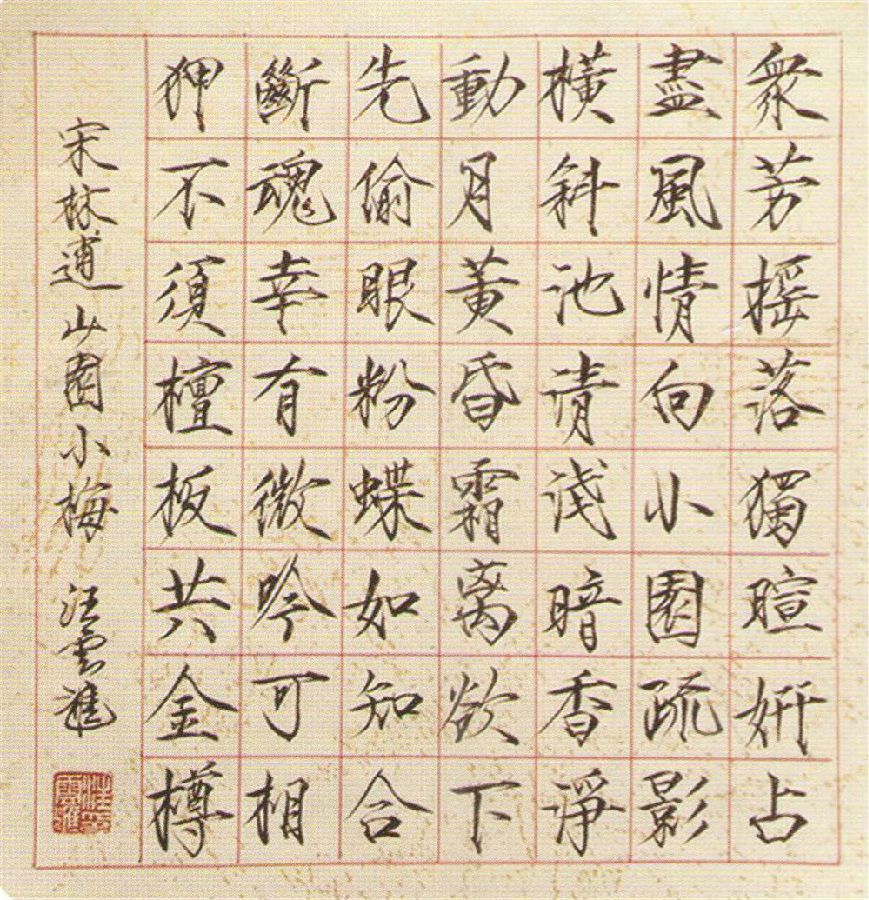 衆芳摇落獨暄妍占
盡風情向小園疏影
橫斜池清淺暗香淨
動月黃昏霜离欲下
先偷眼粉蝶如知合
斷魂幸有微吟可相
狎不須檀板共金樽
宋林逋山園小梅 汪雲進